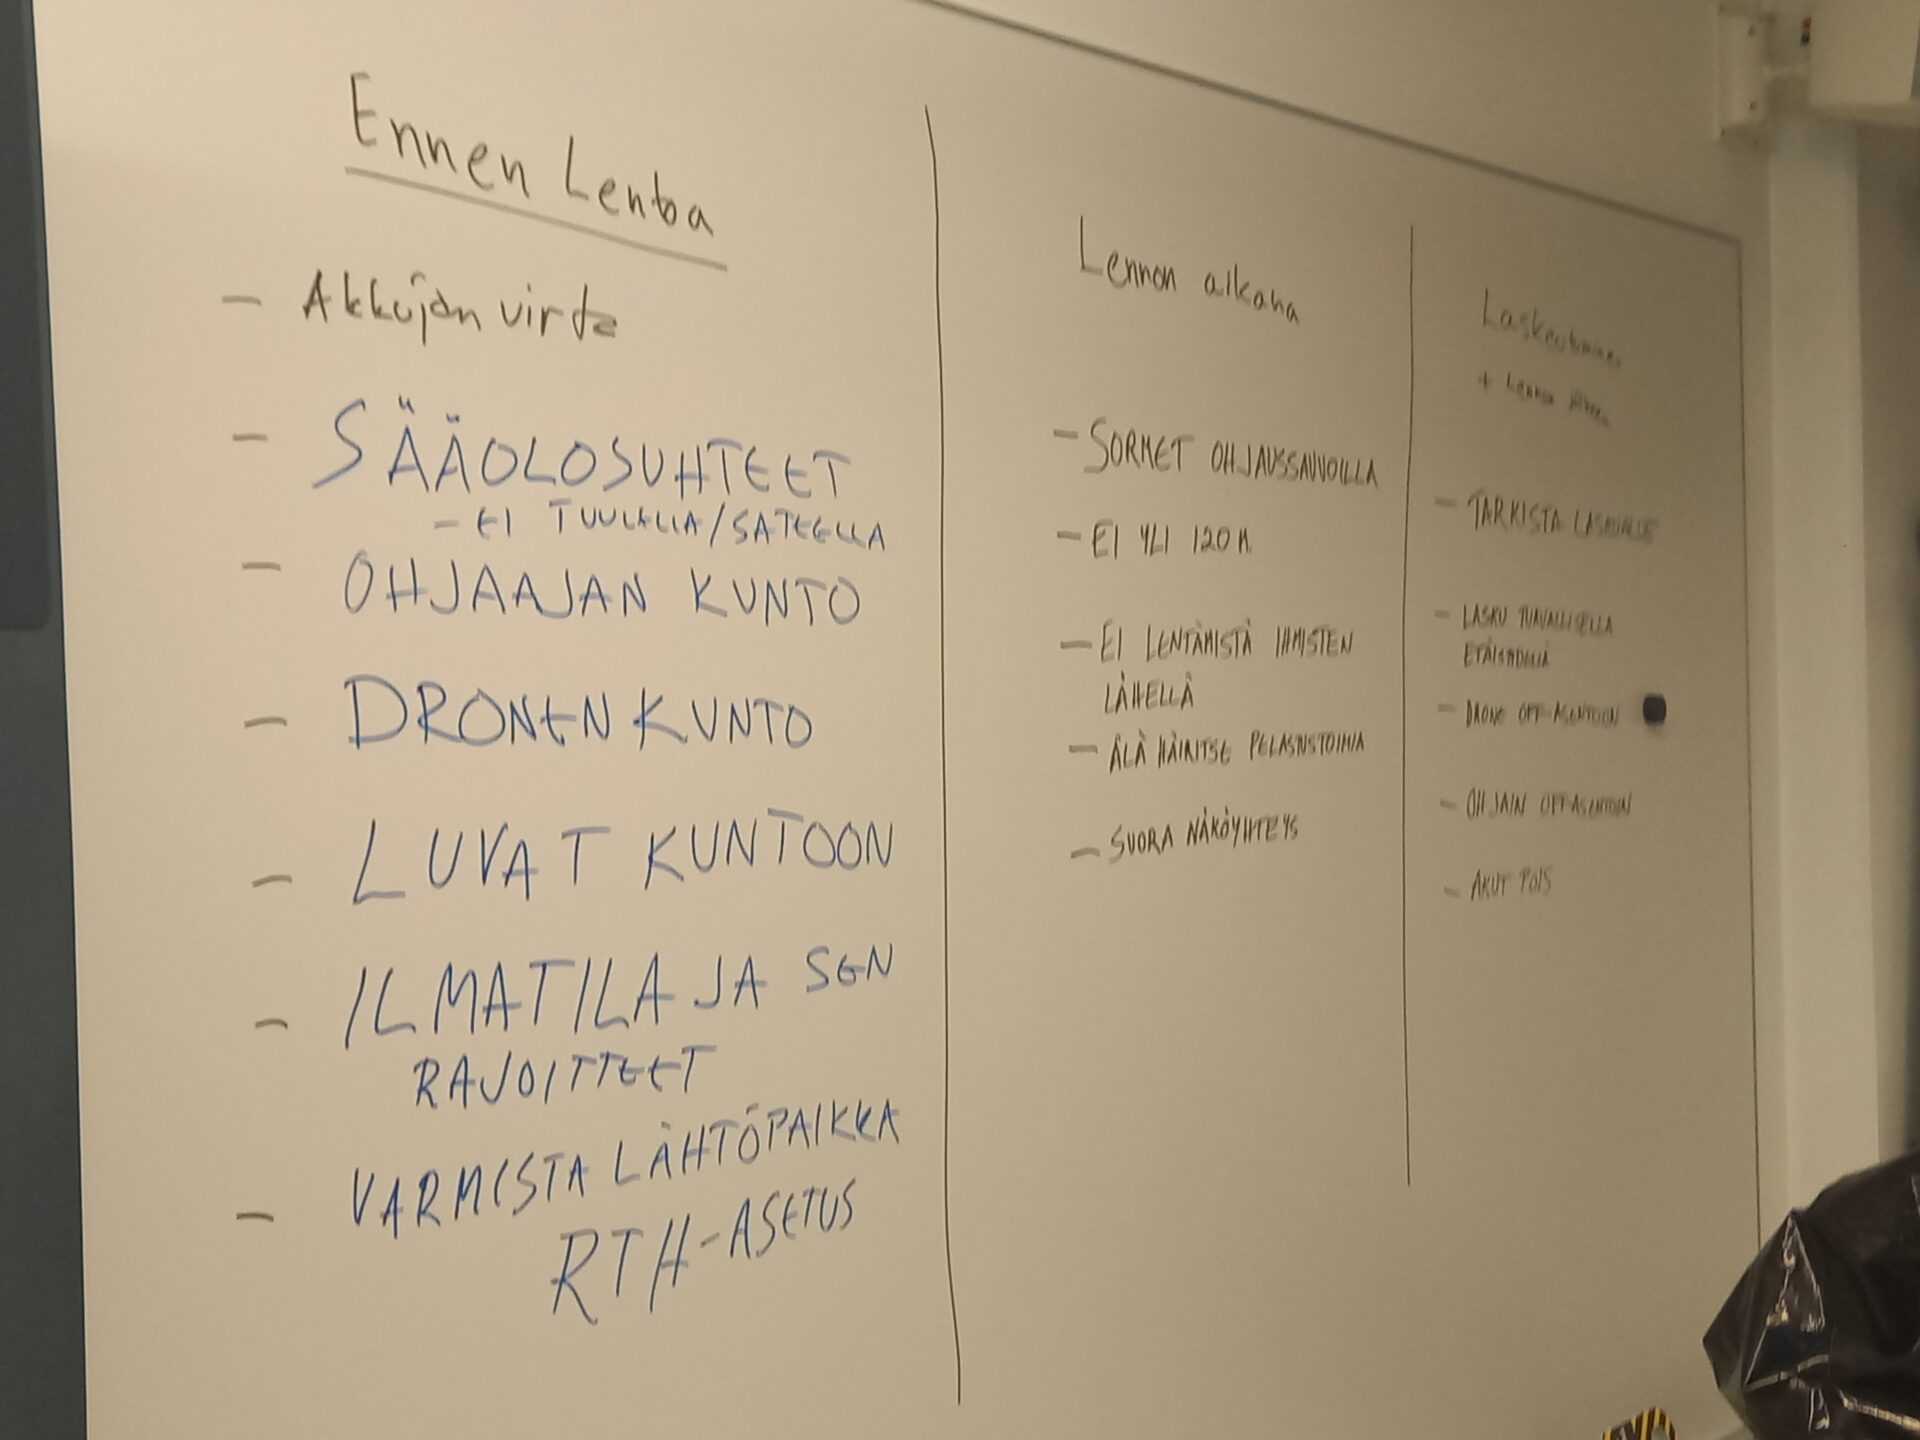 Ennen Lentoa
- Akkujan virta
- SÄÄOLOSUHTEET
- EI TUULELLA/SATEELLA
- OHJAAJAN KUNTO
- DRONEN KUNTO
- LUVAT KUNTOON
- ILMATILA JA SEN
RAJOITTEET
- VARMISTA LÄHTÖPAIKKA
RTH-ASETUS
Lennon aikana
- SORMET OHJAUSSAUVOILLA
- EI YLI 120 M.
- EI LENTÄMISTÄ IHMISTEN
LÄHELLÄ
- ÄLÄ HÄIRITSE PELASTUSTOIMIA
- SUORA NÄKÖYHTEYS
Laskeutuminen
+ Lennon jälkeen
- TARKISTA
- LASKU TURVALLISELLA
ETÄISYYDELLÄ
- DRONE OFF-ASENTOON
- OHJAIN OFF-ASENTOON
- AKUT POIS